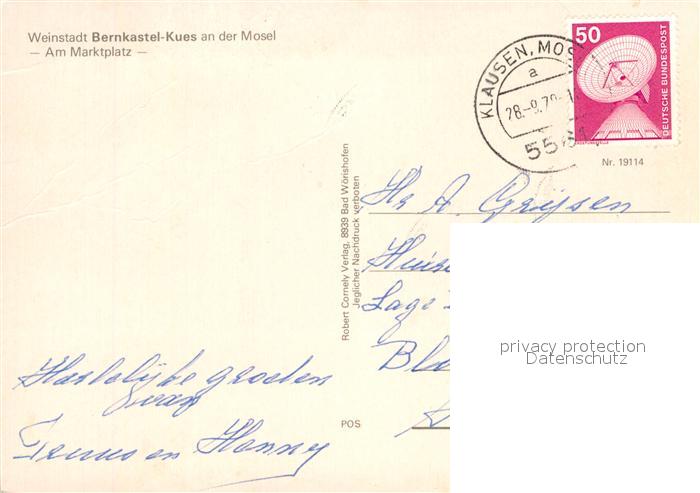 Weinstadt Bernkastel-Kues an der Mosel
— Am Marktplatz —
KLAUSEN, MOS
a
28.-9.79.-1
5561
50
DEUTSCHE BUNDESPOST
Nr. 19114
Robert Cornely Verlag, 8939 Bad Wörishofen
Jeglicher Nachdruck verboten
Hr A. Grijsen
Huize
Lage
Bla
privacy protection
Datenschutz
Hartelijke groeten
van
Teunis en Hanny
POS